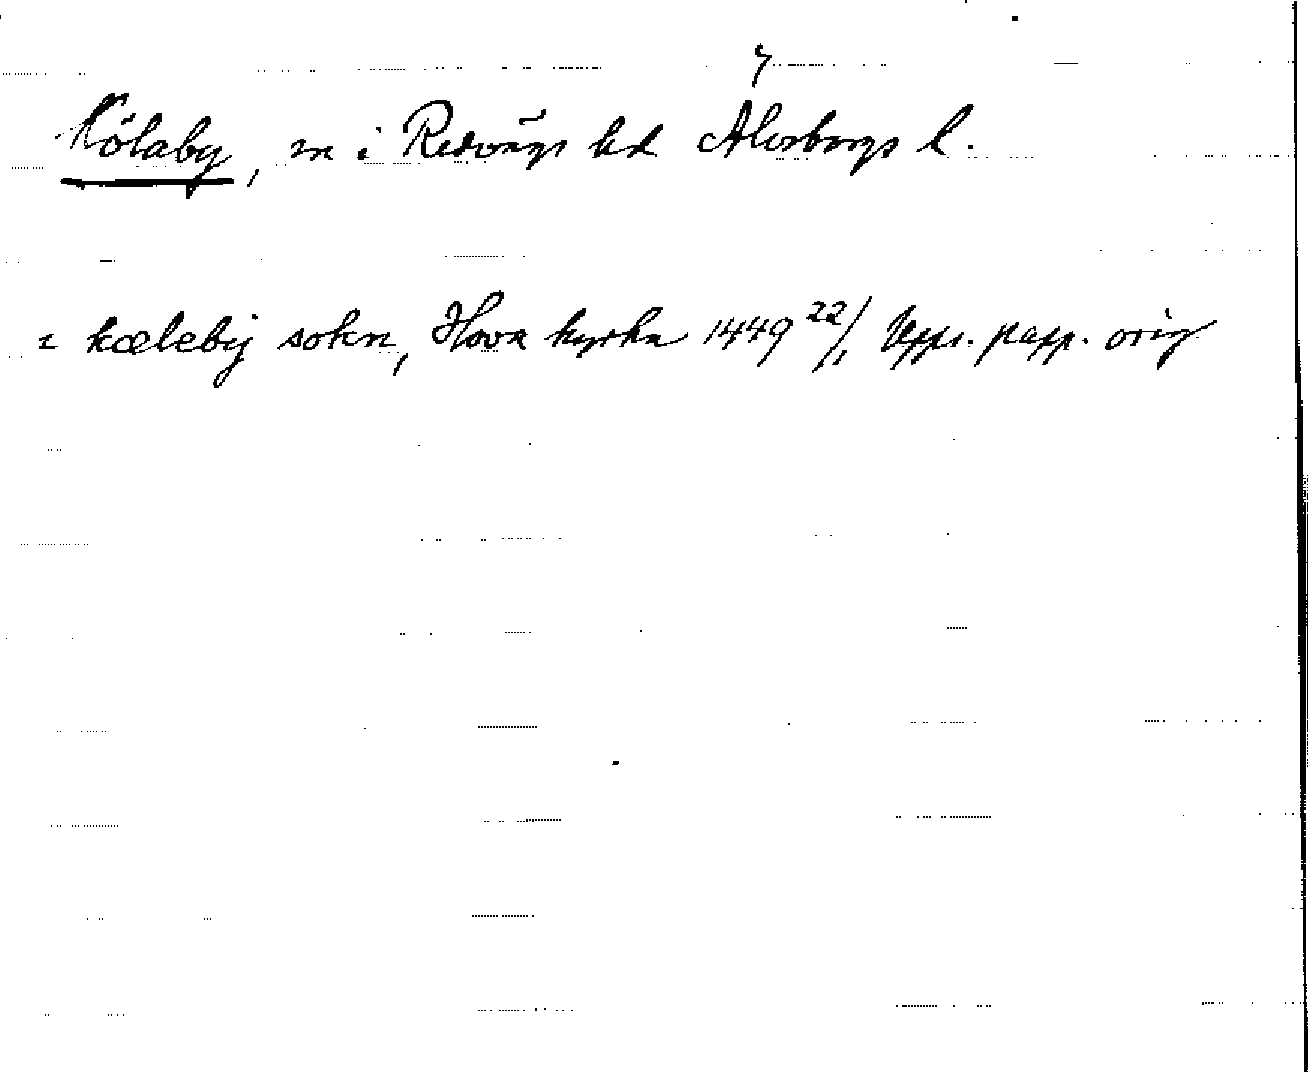 Kölaby, sn i Redvägs hd Älvsborgs l.
i kælebij sokn, Hova kyrka 1449 22/1 Upps. papp. orig